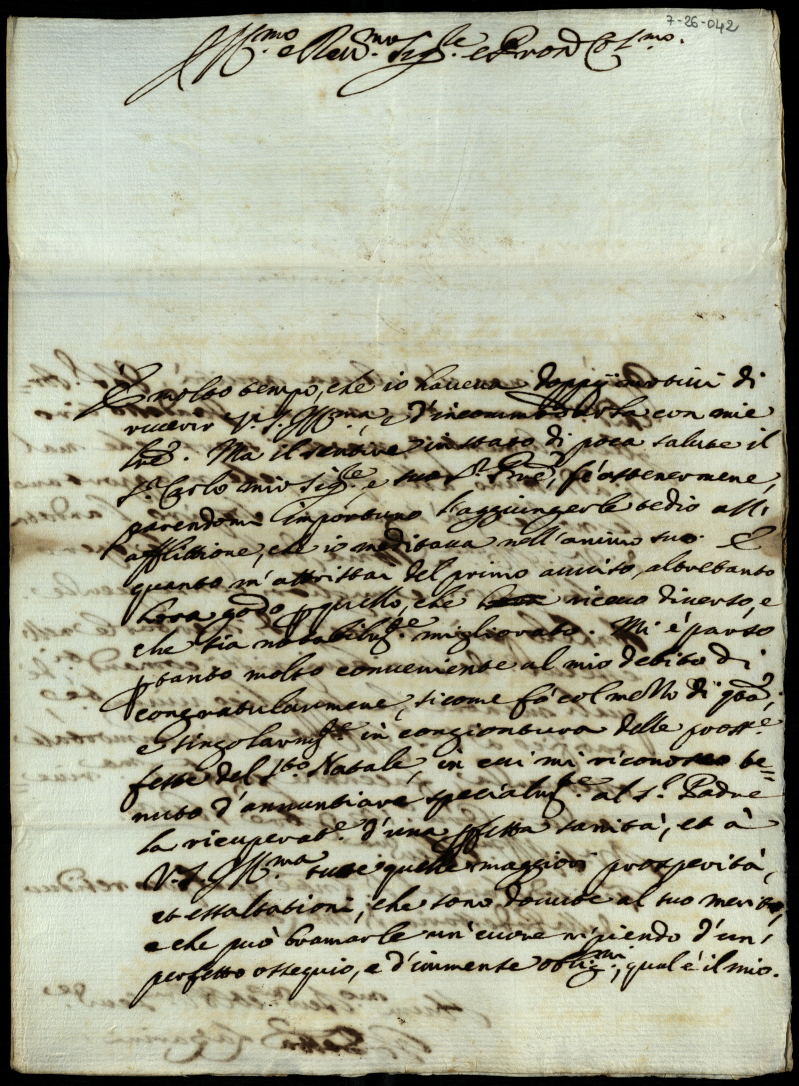 7-26-042
Ill.mo e Rev.mo Sig.re e Pron Col.mo
È molto tempo, che io haveva doppij motivi di
riverir V.S. Ill.ma, e d'incommodarla con mie
lre. Ma il sentire in stato di poca salute il
S.r Carlo mio Sig.re, e suo S.r Pre, fé astenermene,
parendomi importuno l'aggiungerle tedio all'
afflittione, che io meditava nell'animo suo. E
quanto m'attristai del primo avviso, altrettanto
hora godo p quello, che ricevo diverso, e
che sia notabilm.te migliorato. Mi è parso
p tanto molto conveniente al mio debito di
congratularmene, sicome fò col mezzo di q.ta,
e singolarm.te in congiontura delle pross.e
feste del S.to Natale, in cui mi riconosco te=
nuto d'annuntiare specialm.te al S.r Padre
la ricuperat.e d'una pfetta sanità, et à
V.S. Ill.ma tutte quelle maggiori prosperità,
et essaltationi, che sono dovute al suo merito,
e che può bramarle un cuore ripieno d'un
perfetto ossequio, e d'immense oblig.ni, qual è il mio.